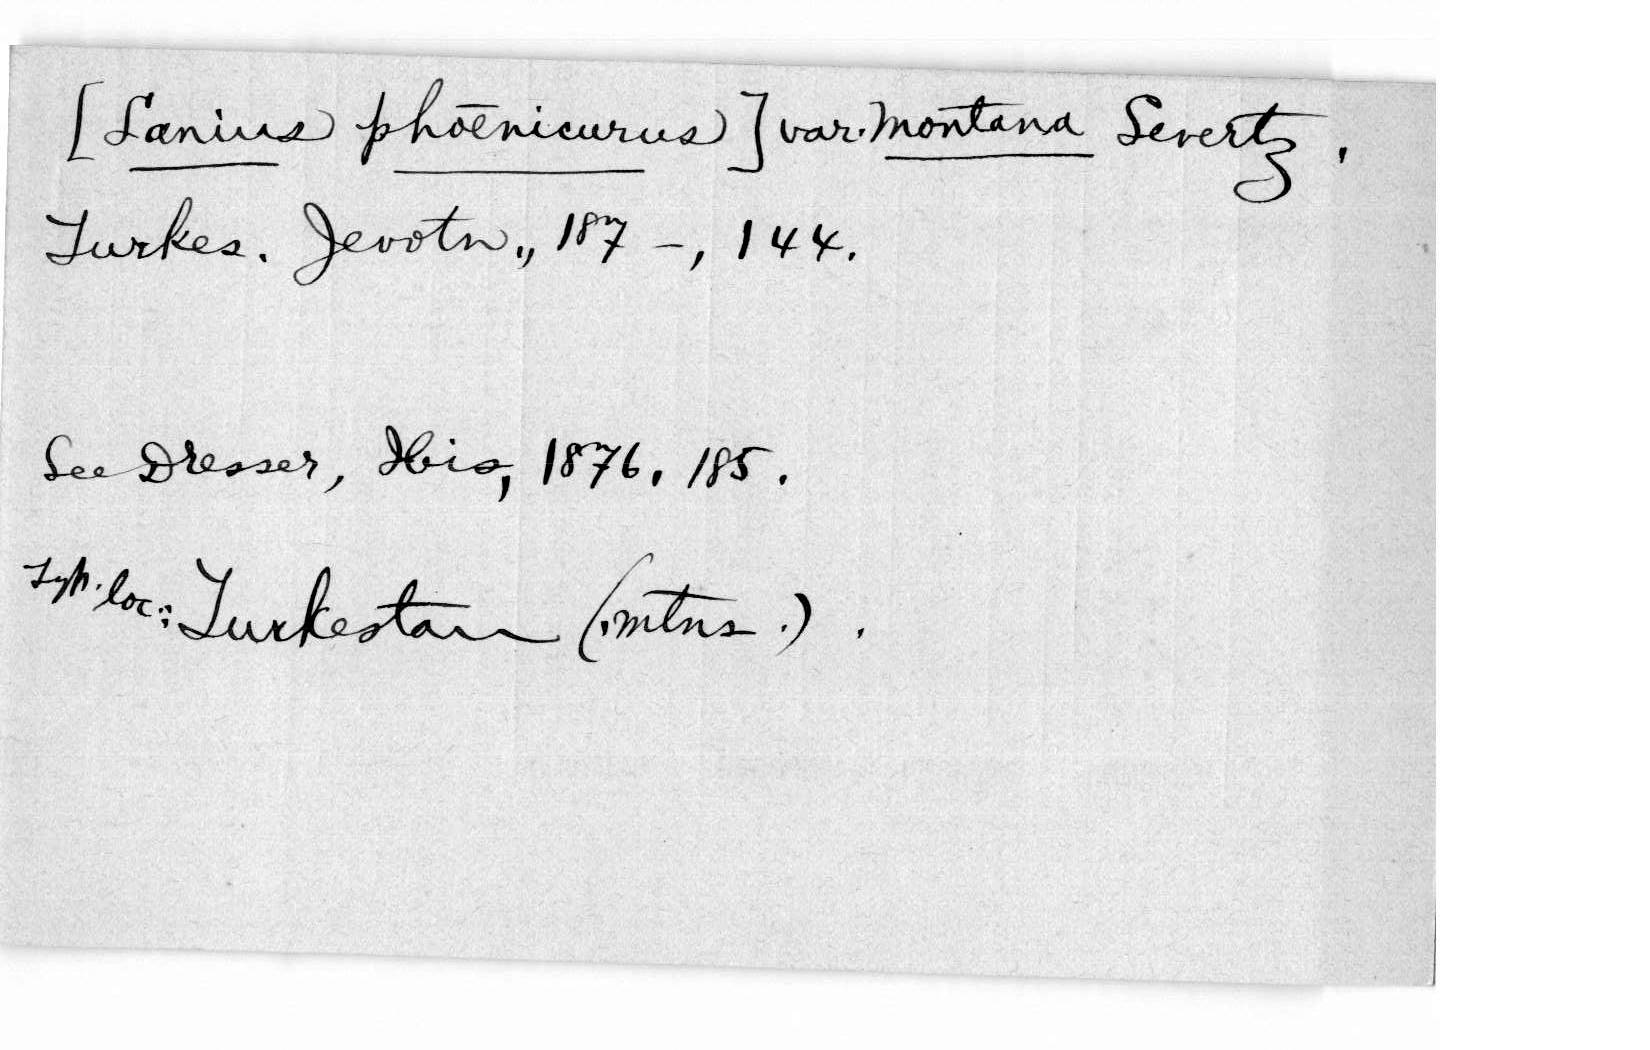 [Lanius phoenicurus] var. montana Severtz.
Turkes. Jevotn., 187-, 144.
See Dresser, Ibis, 1876, 185.
Typ. loc.: Turkestan (mtns.).